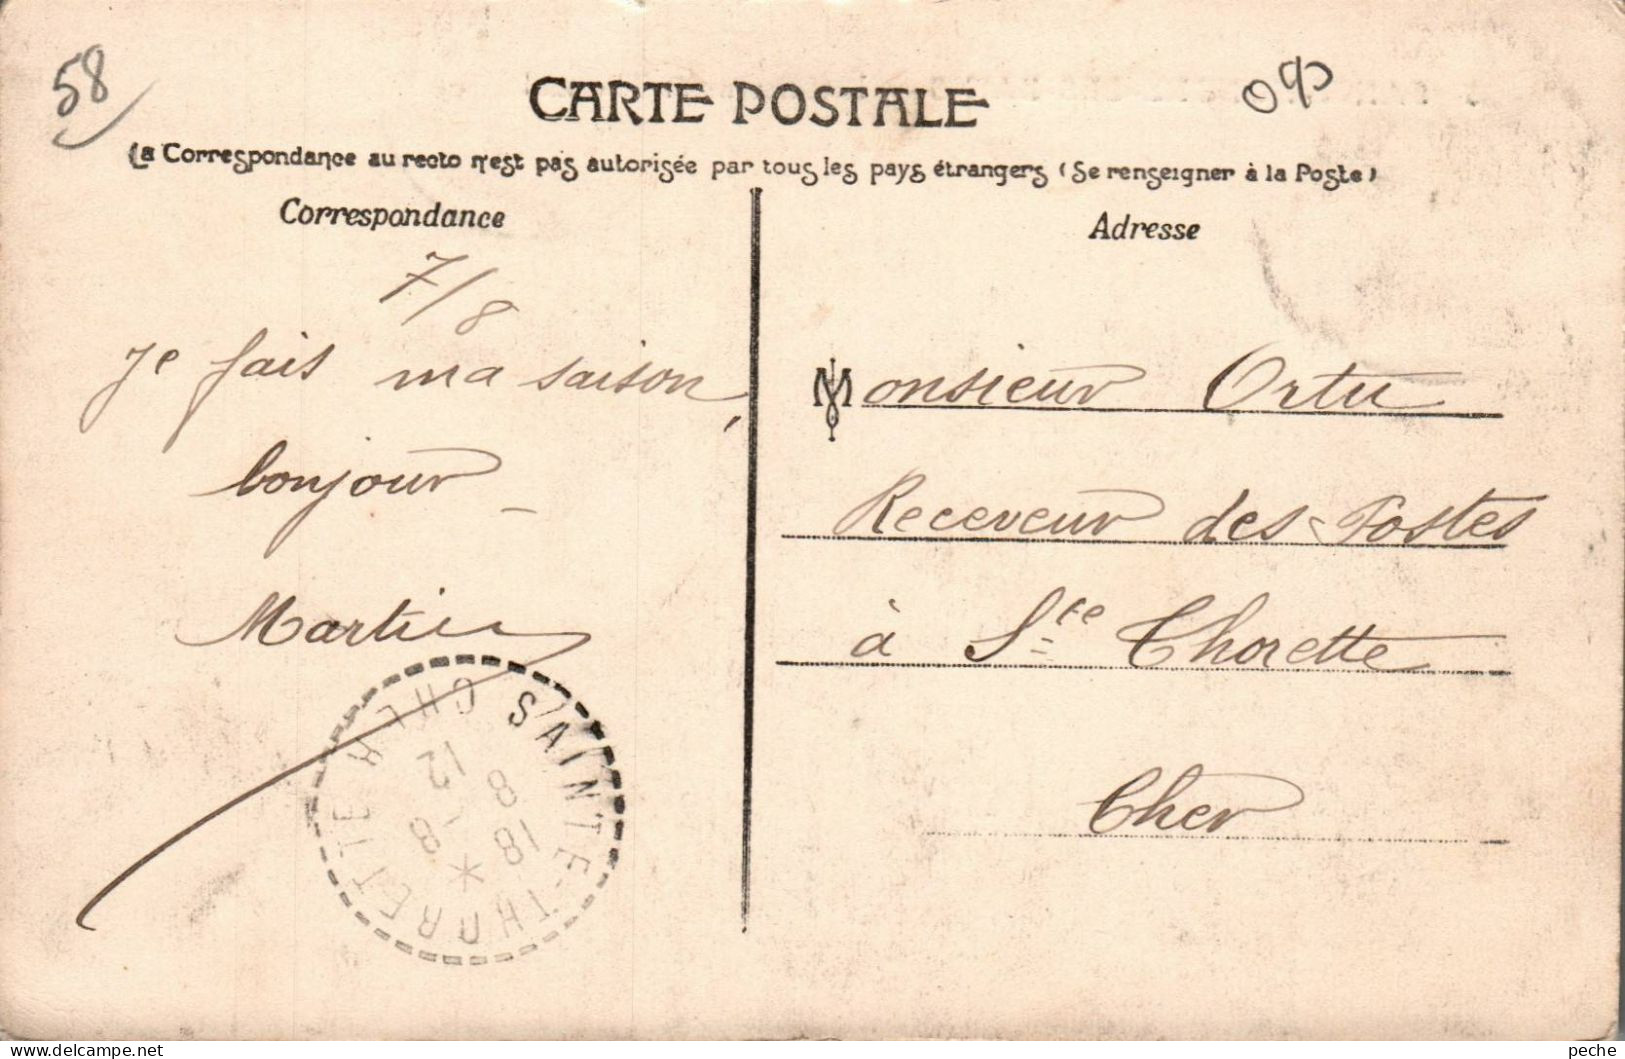 58
CARTE POSTALE
La Correspondance au recto n'est pas autorisée par tous les pays étrangers (Se renseigner à la Poste)
Correspondance
7/8
Je fais ma saison,
bonjour –
Martin
SAINTE-THORETTE CHER
18
8
-8
12
Adresse
Monsieur Ortu
Receveur des Postes
à Ste Thorette
Cher
peche